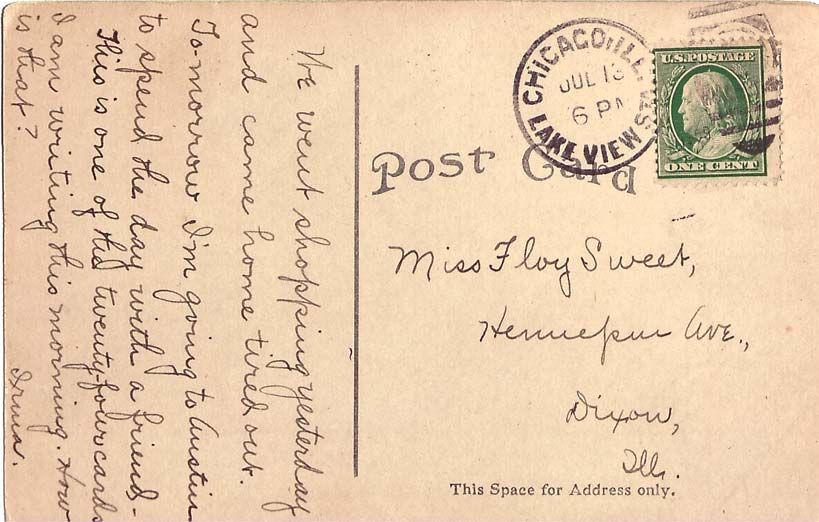 We went shopping yesterday
and came home tired out.
To-morrow I'm going to Austin
to spend the day with a friend-
This is one of the twenty-four cards
I am writing this morning. How
is that?
Irma.
CHICAGO, ILL.
JUL 13
6 PM
LAKE VIEW STA.
U.S. POSTAGE
ONE CENT
Post Card
Miss Floy Sweet,
Hennepin Ave.,
Dixon,
Ill.
This Space for Address only.